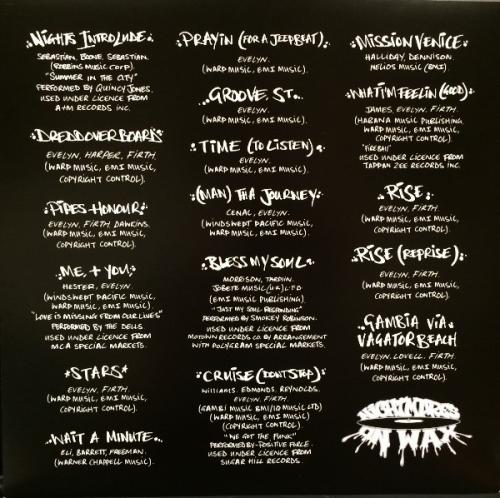 NIGHTS INTROLUDE
SEBASTIAN, BOONE, SEBASTIAN.
(ROBBINS MUSIC CORP).
"SUMMER IN THE CITY"
PERFORMED BY QUINCY JONES.
USED UNDER LICENCE FROM
A+M RECORDS INC.
DREDDOVERBOARD
EVELYN, HARPER, FIRTH.
(WARP MUSIC, EMI MUSIC,
COPYRIGHT CONTROL).
PIPES HONOUR
EVELYN, FIRTH, DAWKINS.
(WARP MUSIC, EMI MUSIC,
COPYRIGHT CONTROL).
ME + YOU
HESTER, EVELYN.
(WINDSWEPT PACIFIC MUSIC,
WARP MUSIC, EMI MUSIC).
"LOVE IS MISSING FROM OUR LIVES"
PERFORMED BY THE DELLS
USED UNDER LICENCE FROM
MCA SPECIAL MARKETS.
*STARS*
EVELYN, FIRTH.
(WARP MUSIC, EMI MUSIC,
COPYRIGHT CONTROL).
WAIT A MINUTE
ELI, BARRETT, FREEMAN.
(WARNER CHAPPELL MUSIC).
PRAYIN (FOR A JEEPBEAT)
EVELYN.
(WARP MUSIC, EMI MUSIC).
GROOVE ST.
EVELYN.
(WARP MUSIC, EMI MUSIC).
TIME (TO LISTEN)
EVELYN.
(WARP MUSIC, EMI MUSIC).
(MAN) THA JOURNEY
CENAC, EVELYN.
(WINDSWEPT PACIFIC MUSIC,
WARP MUSIC, EMI MUSIC).
BLESS MY SOUL
MORRISON, TARPLIN.
JOBETE MUSIC (UK) LTD
(EMI MUSIC PUBLISHING).
"JUST MY SOUL RESPONDING"
PERFORMED BY SMOKEY ROBINSON.
USED UNDER LICENCE FROM
MOTOWN RECORDS CO. BY ARRANGEMENT
WITH POLYGRAM SPECIAL MARKETS.
CRUISE (DONT STOP)
WILLIAMS, EDMONDS, REYNOLDS,
EVELYN, FIRTH.
(GAMBI MUSIC BMI/IQ MUSIC LTD)
(WARP MUSIC, EMI MUSIC,
COPYRIGHT CONTROL).
"WE GOT THE FUNK"
PERFORMED BY POSITIVE FORCE.
USED UNDER LICENCE FROM
SUGAR HILL RECORDS.
MISSION VENICE
HALLIDAY, DENNISON.
HELIOS MUSIC (EMI).
WHAT I'M FEELIN (GOOD)
JAMES, EVELYN, FIRTH.
(HARANA MUSIC PUBLISHING.
WARP MUSIC, EMI MUSIC,
COPYRIGHT CONTROL)
USED UNDER LICENCE FROM
TAPPAN ZEE RECORDS INC.
RISE
EVELYN, FIRTH.
(WARP MUSIC, EMI MUSIC,
COPYRIGHT CONTROL).
RISE (REPRISE)
EVELYN, FIRTH.
(WARP MUSIC, EMI MUSIC,
COPYRIGHT CONTROL).
GAMBIA VIA
VAGATOR BEACH
EVELYN, LOVELL, FIRTH.
(WARP MUSIC, EMI MUSIC,
COPYRIGHT CONTROL).
NIGHTMARES
ON WAX